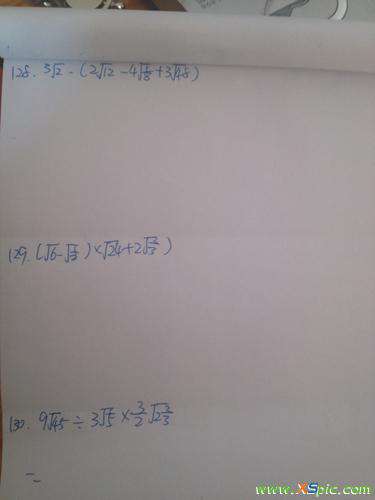 128. 3√2 - (2√12 - 4√⅛ + 3√48)
129. (√6 - √⅓) × √24 + 2√⅔)
130. 9√45 ÷ 3√5 × 3/2 √2⅔
二
www.XSpic.com